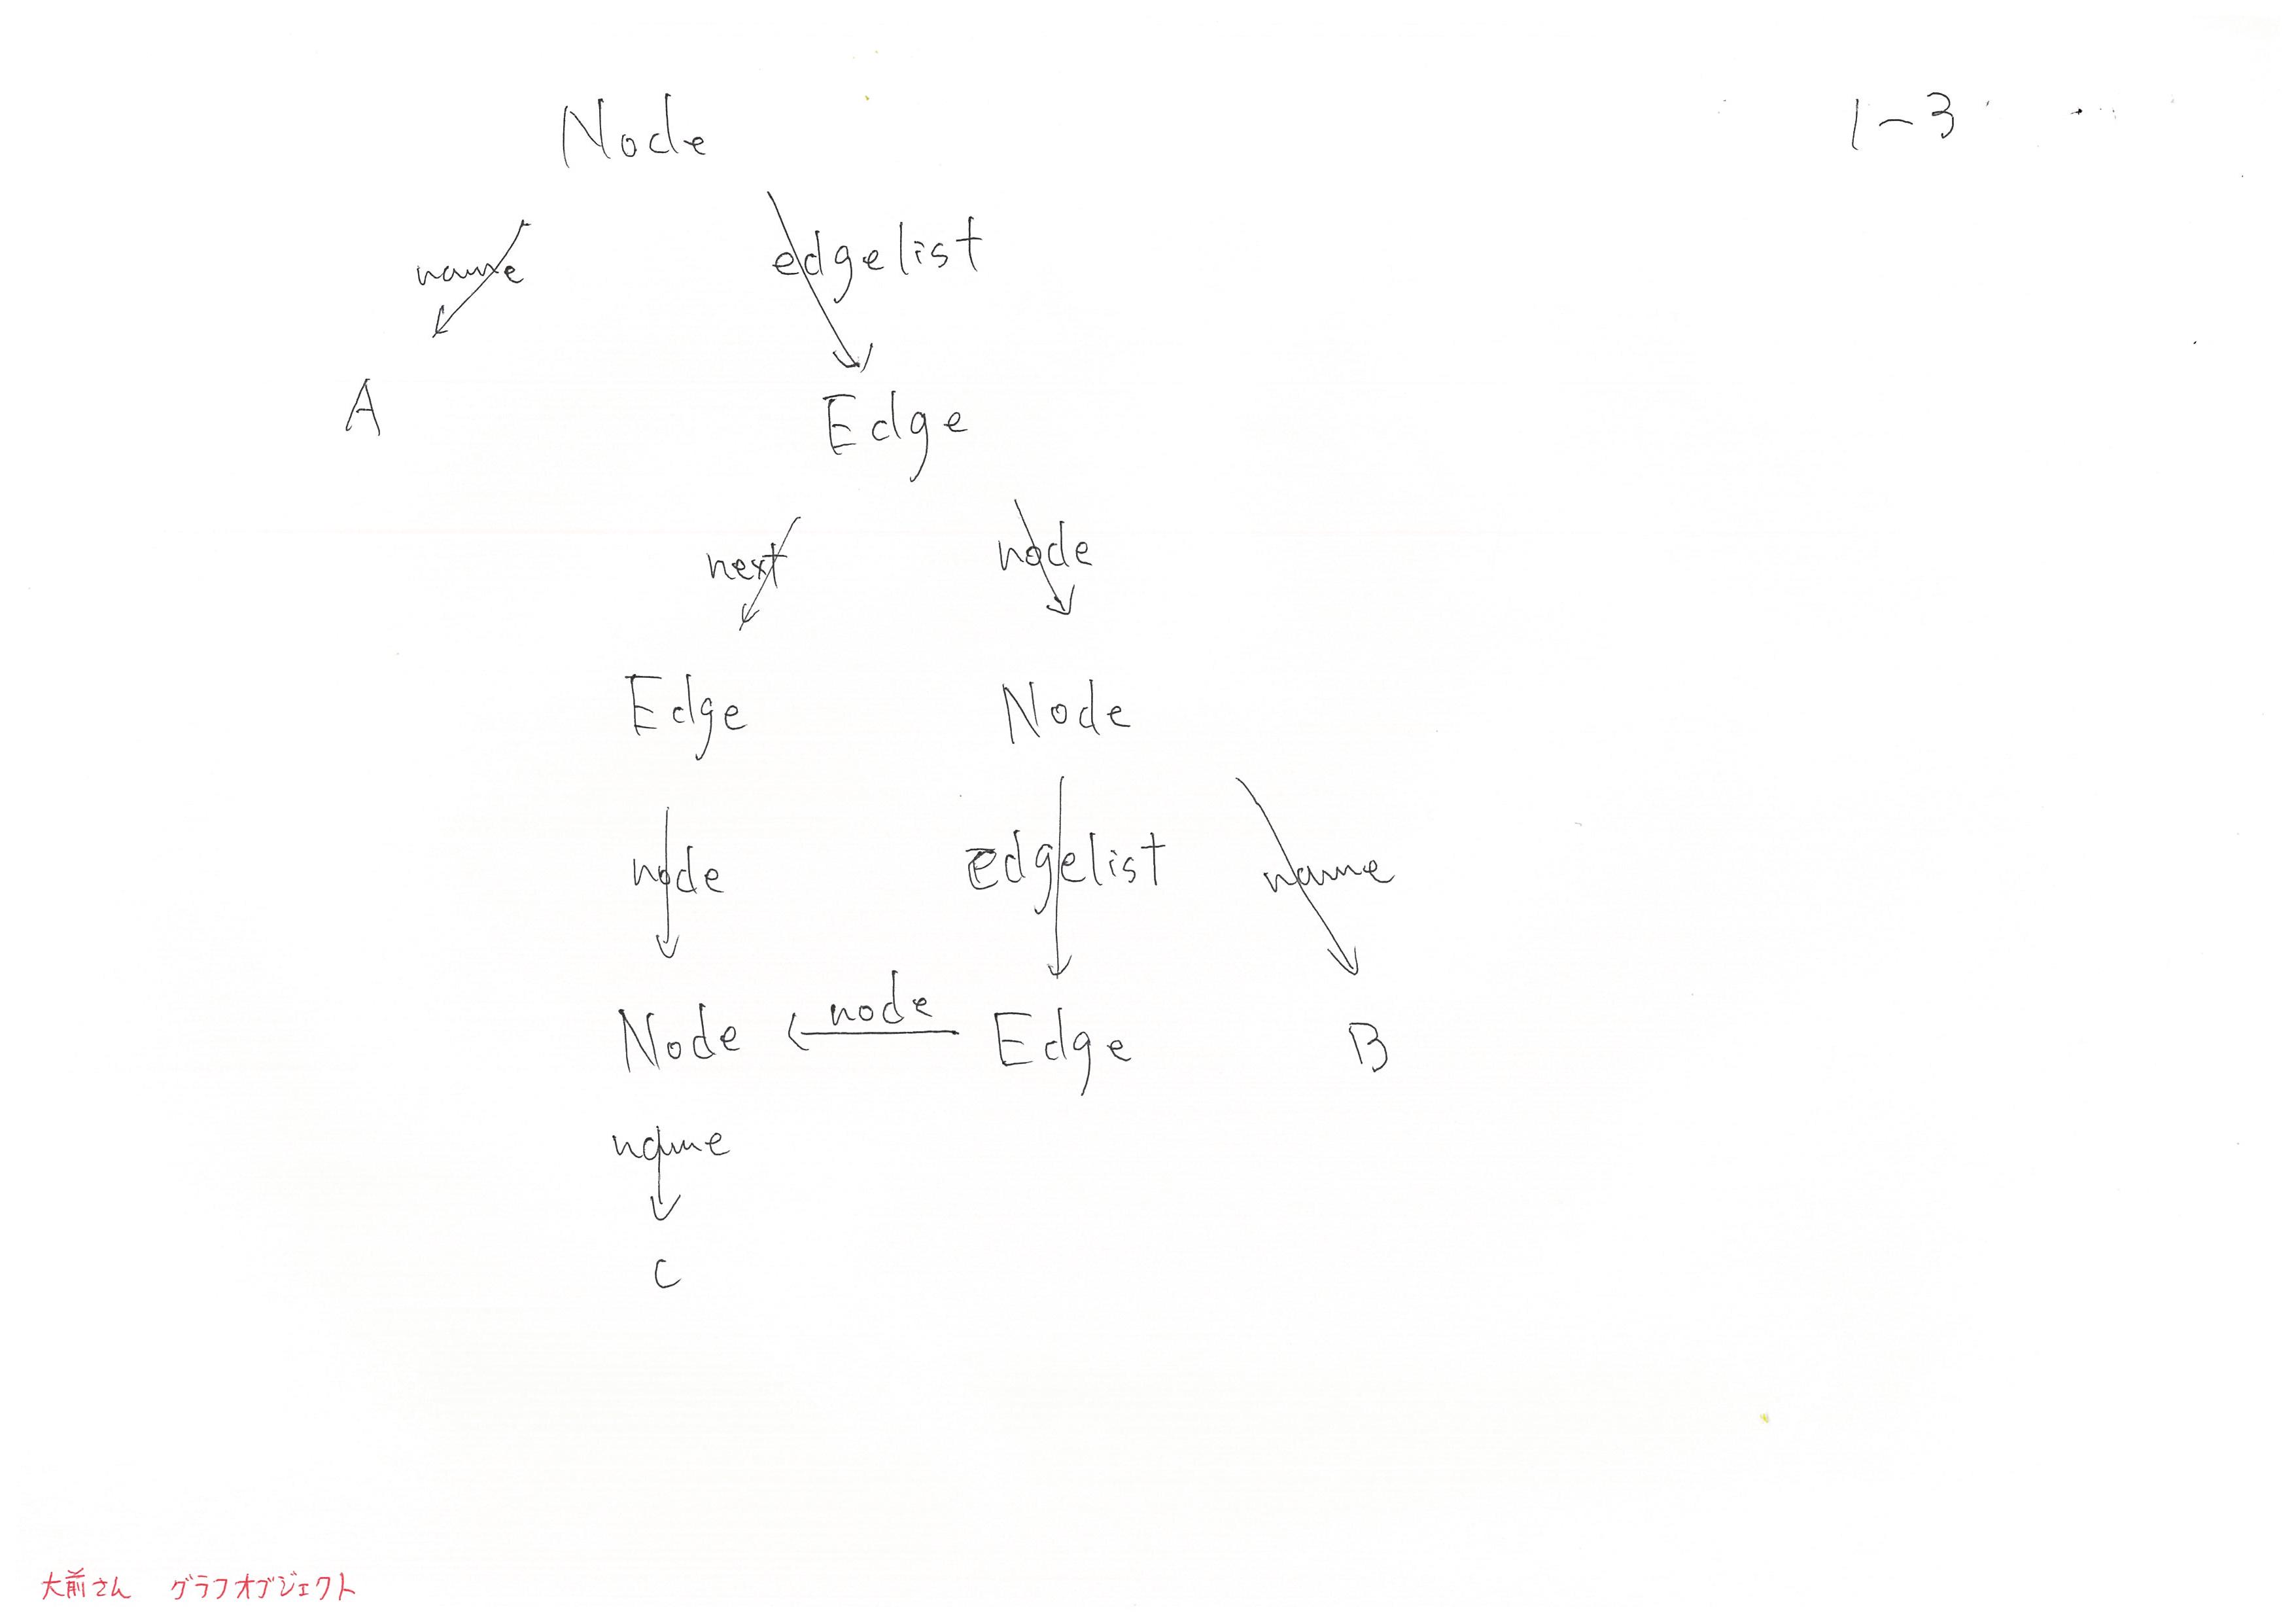 Node
1-3
name
edgelist
A
Edge
next
node
Edge
Node
node
edgelist
name
Node
node
Edge
B
name
C
大前さん グラフオブジェクト